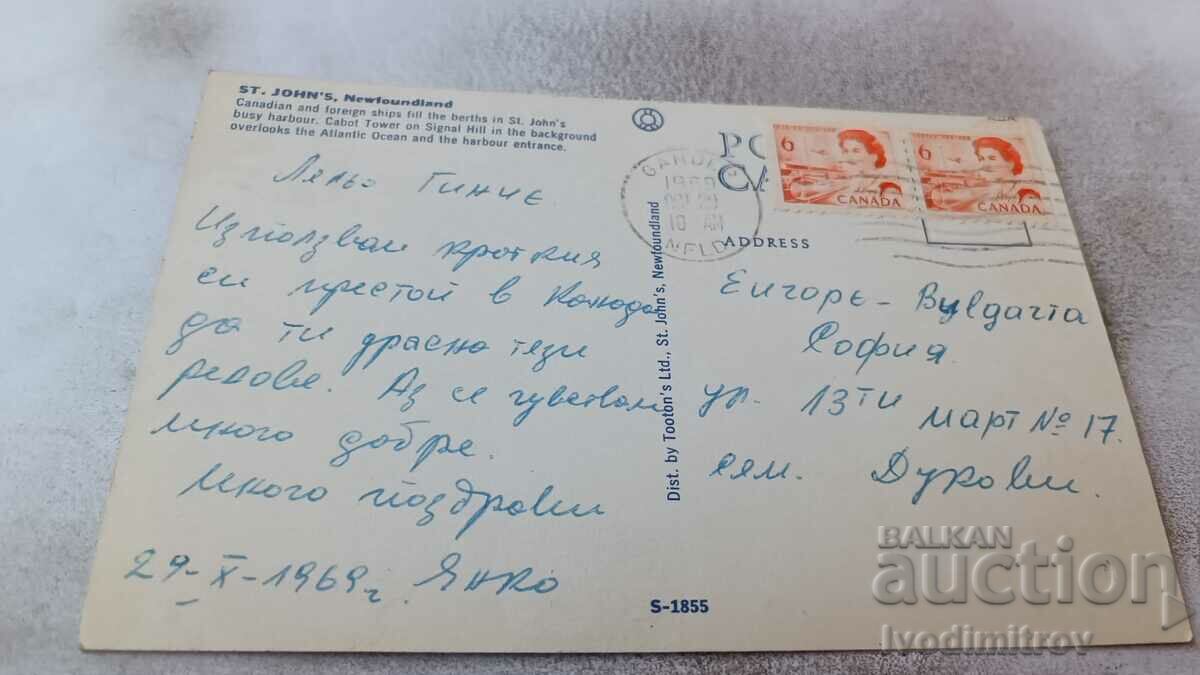 ST. JOHN'S, Newfoundland
Canadian and foreign ships fill the berths in St. John's
busy harbour. Cabot Tower on Signal Hill in the background
overlooks the Atlantic Ocean and the harbour entrance.
Лельо Гиние
Използвам кроткия
си престой в Канада
да ти драсна тези
редове. Аз се чувствам
много добре.
Много поздрави
29-X-1969г. Янко
Dist. by Tooton's Ltd., St. John's, Newfoundland
S-1855
PO
CA
GANDER
1969
OCT 29
10 AM
NFLD
6
CANADA
6
CANADA
ADDRESS
Европе - Bulgaria
София
ул. 13ти март № 17.
сем. Дукови.
BALKAN
auction
Ivodimitrov